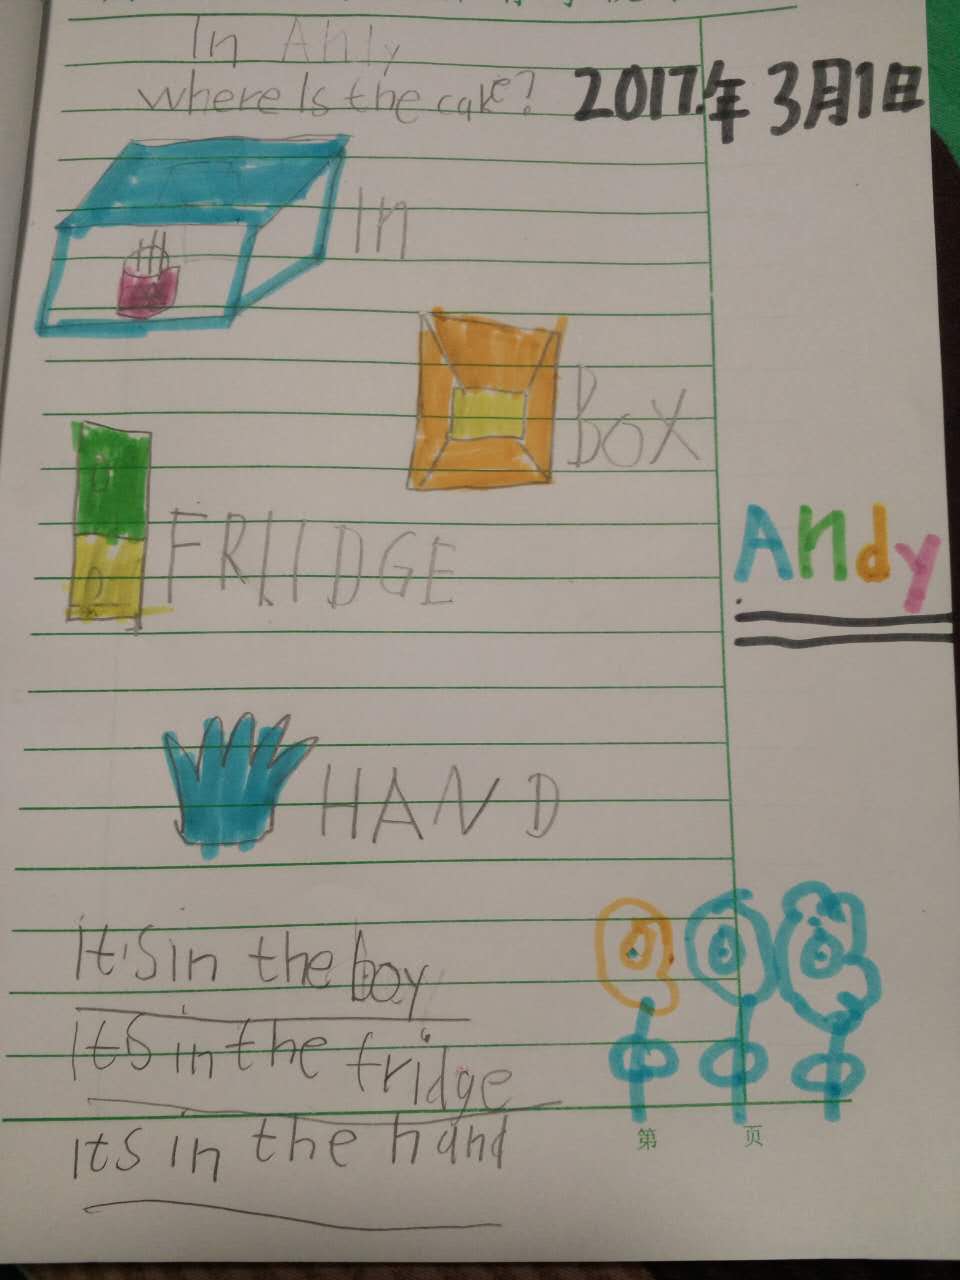 In Andy
where Is the cake?
2017年3月1日
In
BOX
FRIIDGE
Andy
HAND
It'S in the boy
ItS in the fridge
itS in the hand
第 页